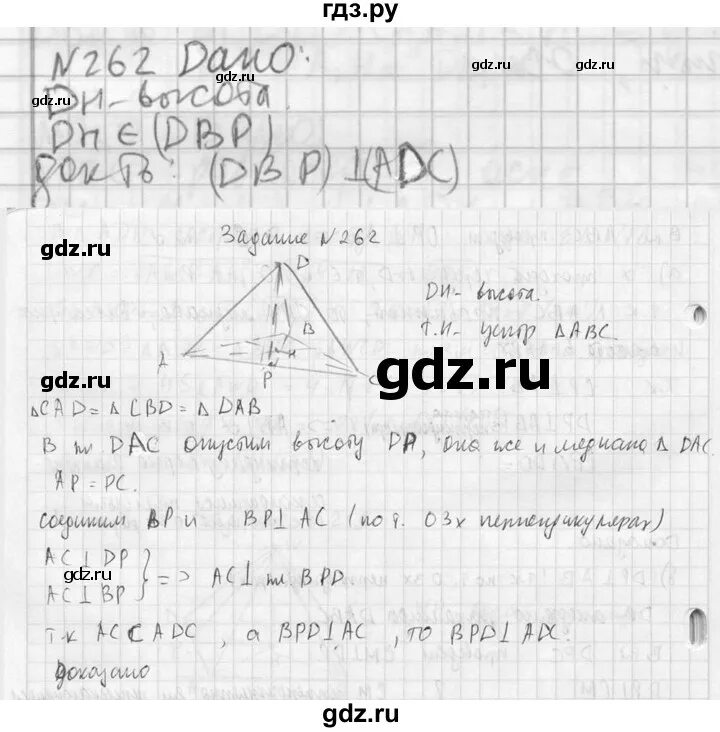 гдз.ру
N262 Дано:
gdz.ru gdz.ru gdz.ru
DH - высота.
DH ∈ (DBP)
gdz.ru gdz.ru
Док-ть: (DBP) ⊥ (ADC)
gdz.ru Задание N262
D
DH - высота.
B
т.H - центр ΔABC.
A H
P C
gdz.ru
ΔCAD = ΔCBD = ΔDAB
В пл DAC опустим высоту DP, она же и медиана Δ DAC.
AP = PC.
соединим BP и BP ⊥ AC (по т. О 3х перпендикулярах)
AC ⊥ DP
gdz.ru
AC ⊥ BP } => AC ⊥ пл. BPD
т.к AC ⊂ ADC, а BPD ⊥ AC, то BPD ⊥ ADC.
Доказано
gdz.ru gdz.ru
gdz.ru